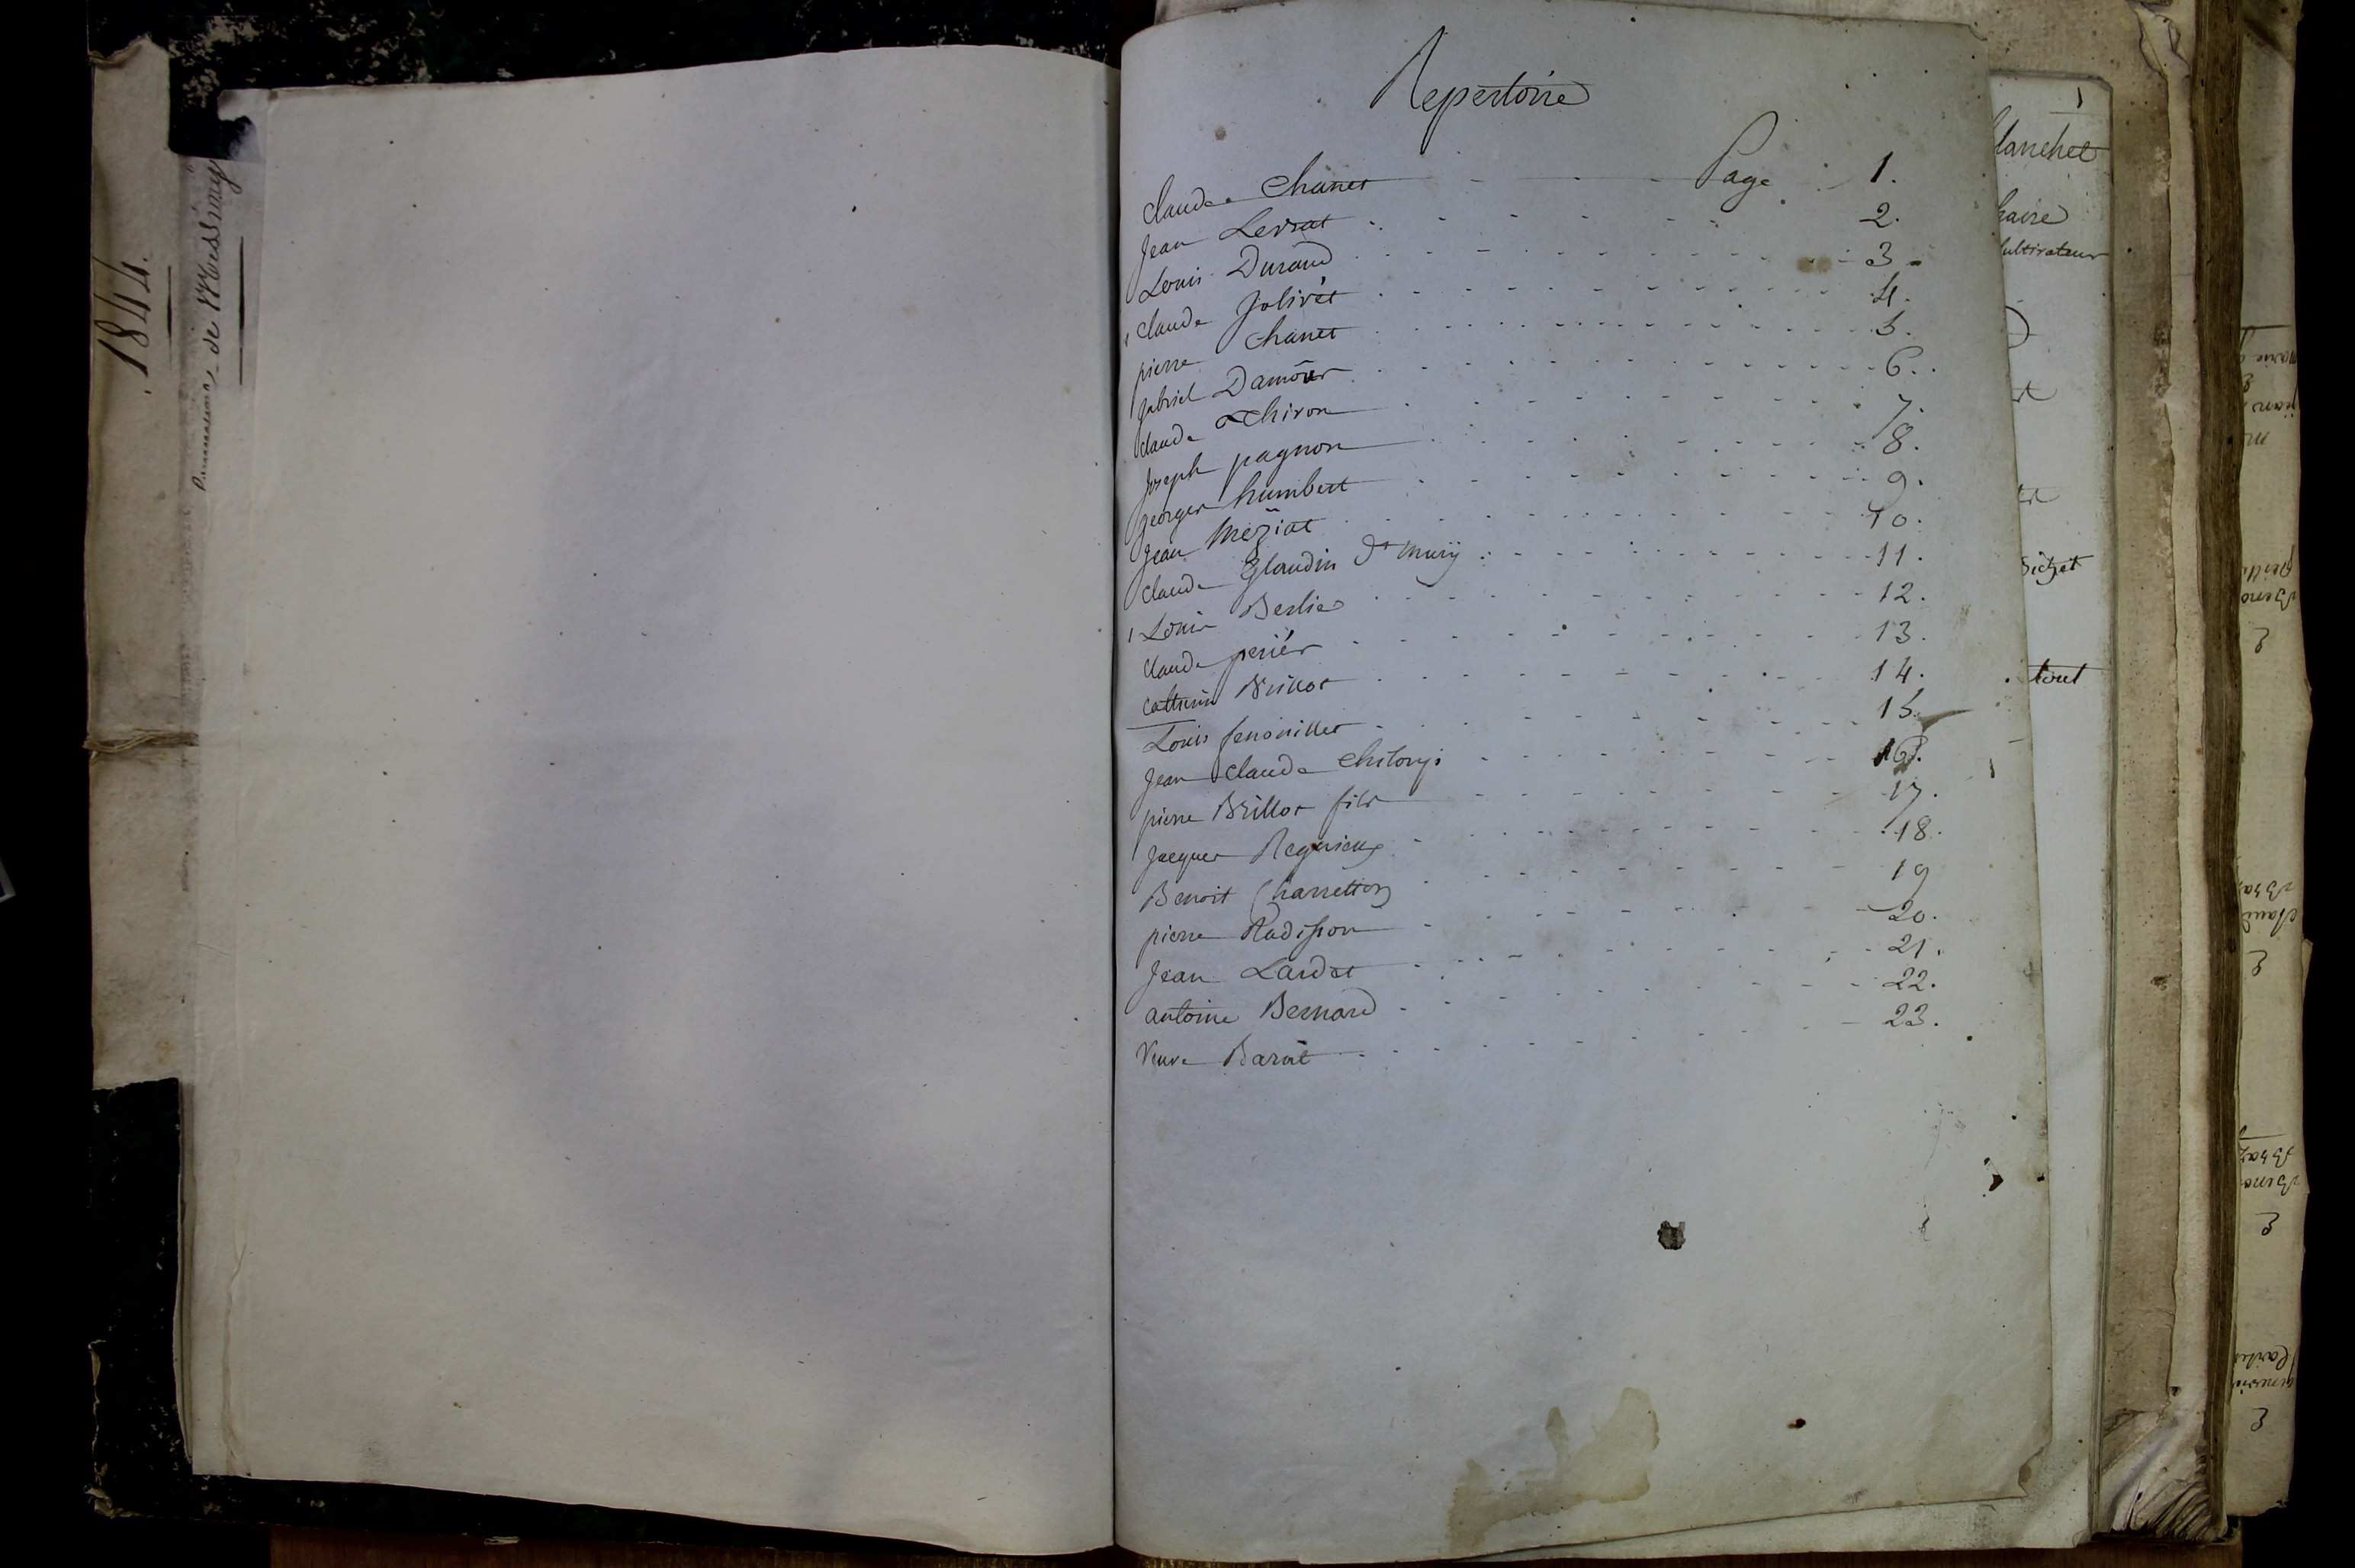 1844.
de Messimy
Repertoire
Claude Chanet Page 1.
Jean Levrat 2.
Louis Durand 3
Claude Jolivet 4.
pierre Chanet 5.
gabriel Damour 6.
Claude Chiron 7.
Joseph pagnon 8.
georges humbert 9.
Jean Meziat 10.
Claude Glaudin dt 11.
Louis Berlie 12.
Claude perier 13.
Catherin Brillot 14.
Louis fenouillet 15.
Jean Claude 16.
pierre Brillot fils 17.
Jacques Regnieux 18.
Benoit Charretton 19
pierre Radisson 20.
Jean Lardet 21.
antoine Bernard 22.
Veuve Barut 23.
1
lanchet
haire
ultivateur
tout